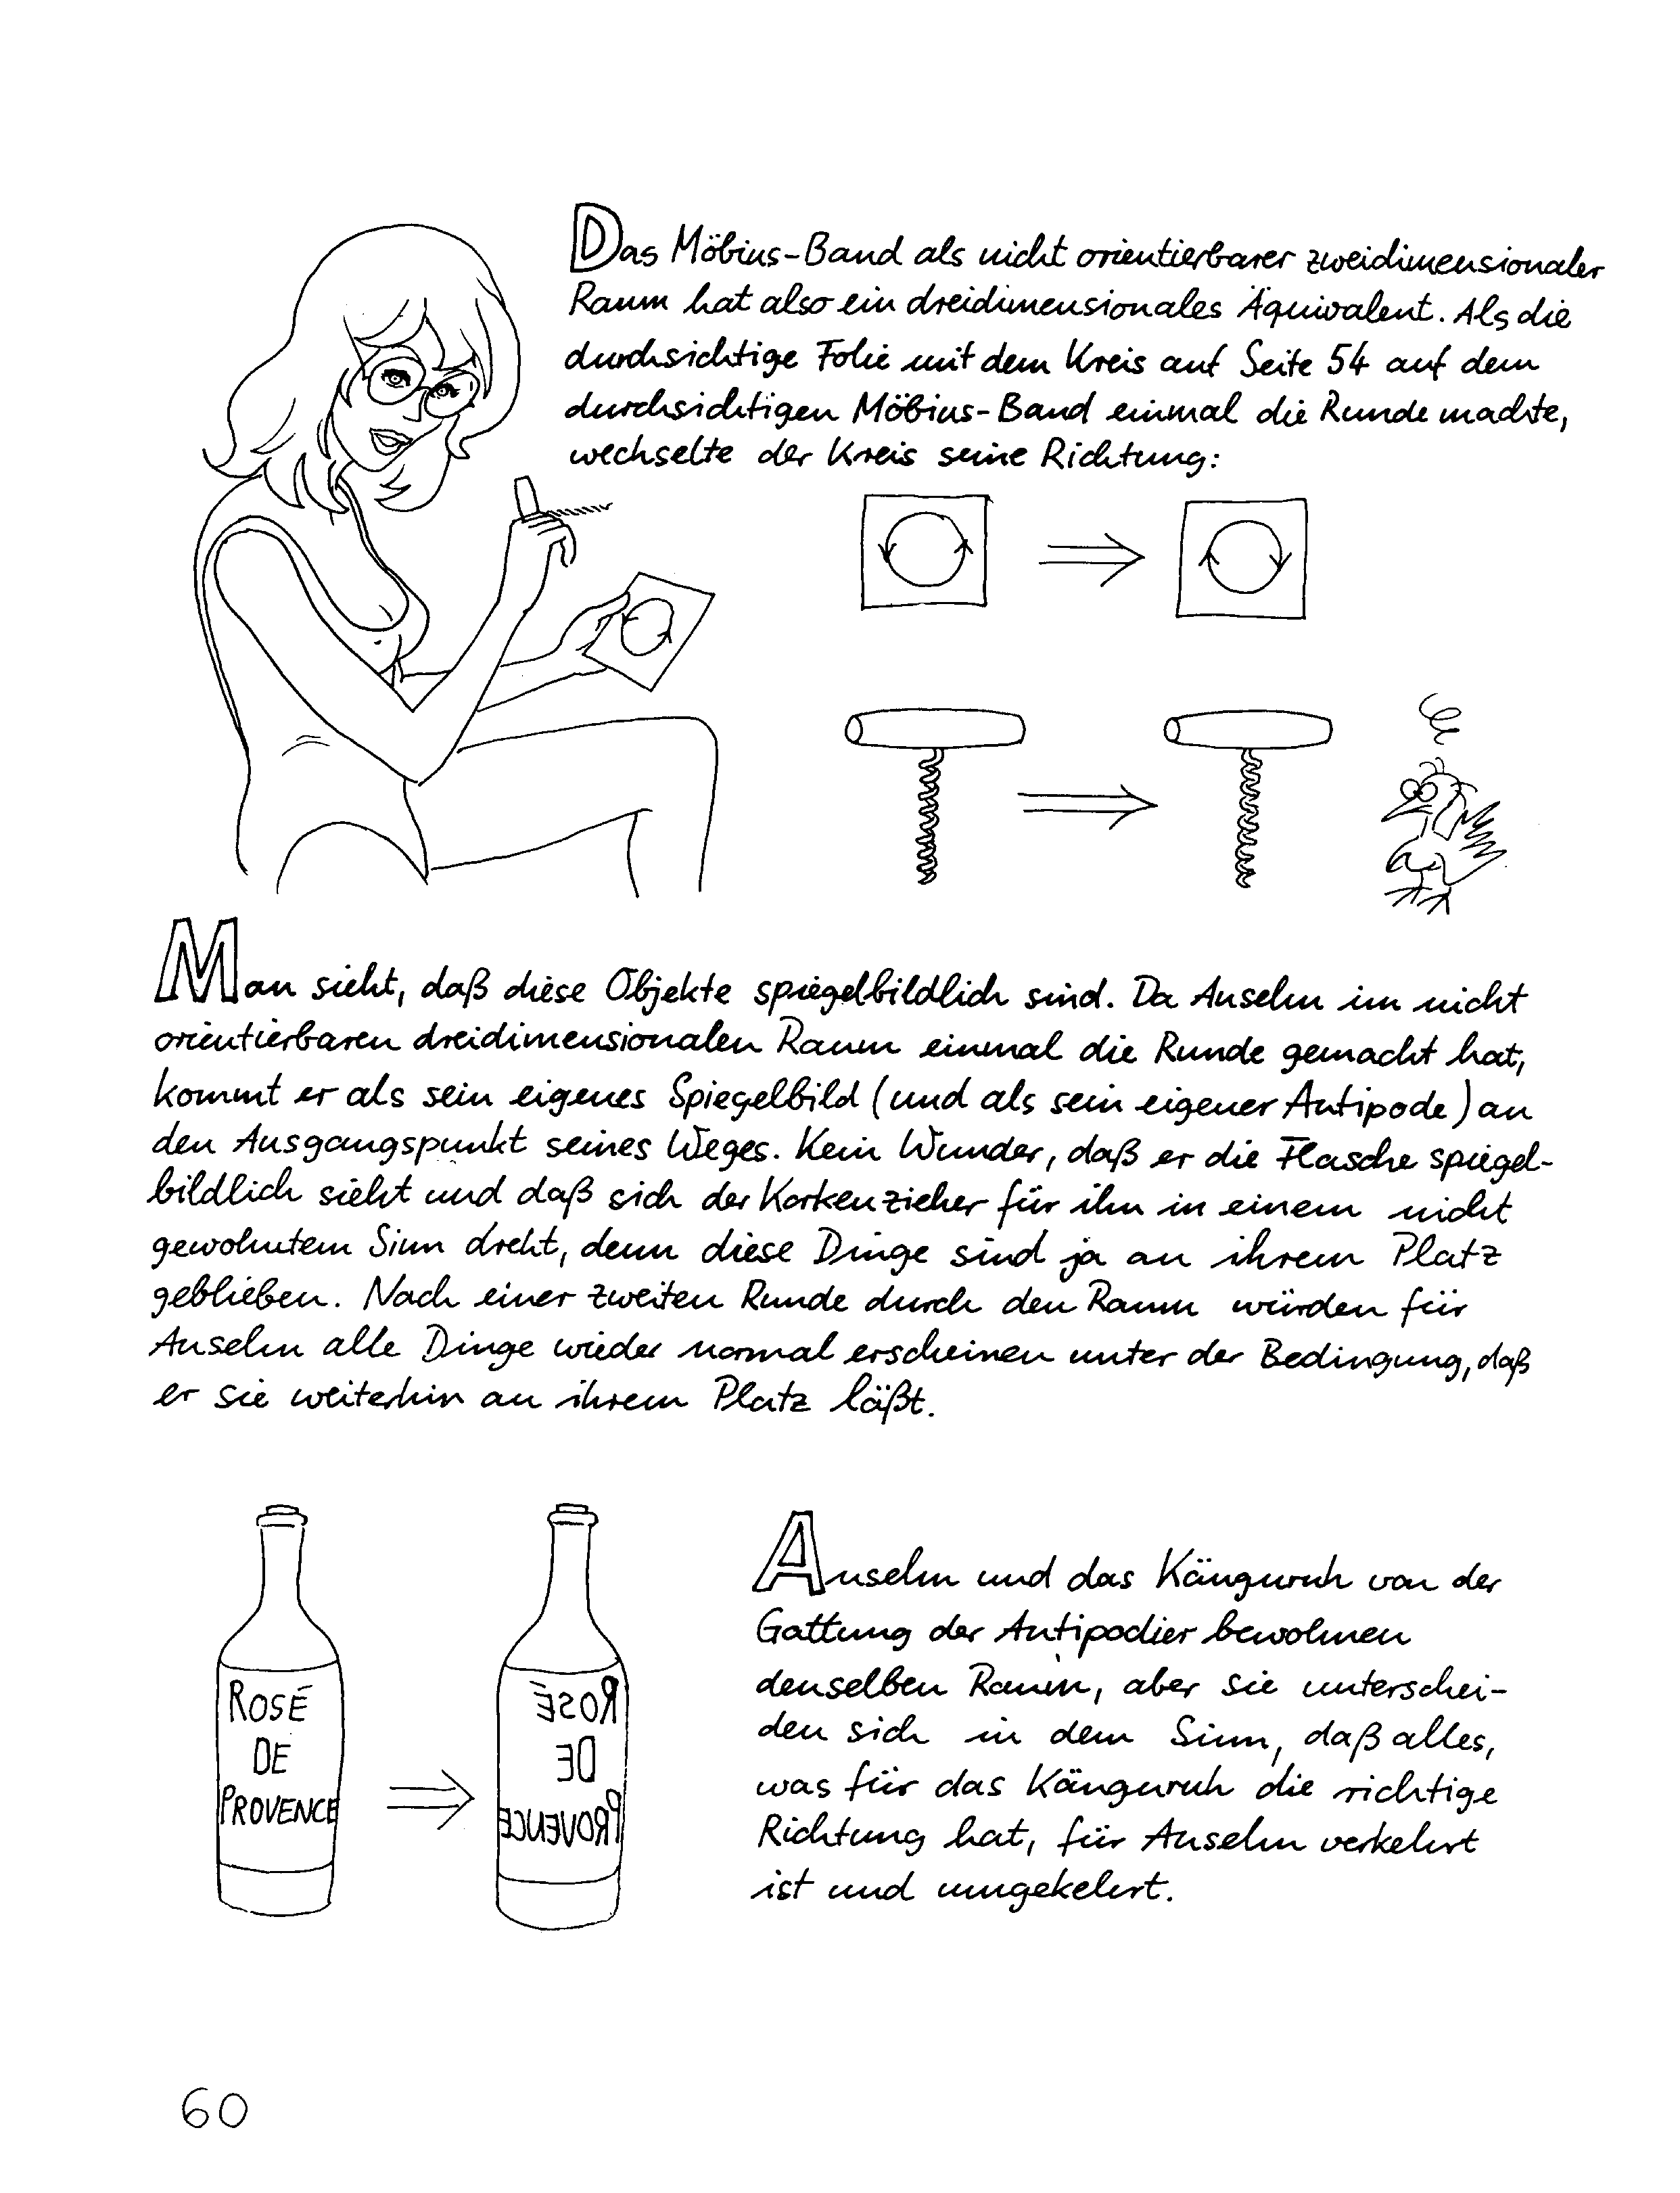 Das Möbius-Band als nicht orientierbarer zweidimensionaler
Raum hat also ein dreidimensionales Äquivalent. Als die
durchsichtige Folie mit dem Kreis auf Seite 54 auf dem
durchsichtigen Möbius-Band einmal die Runde machte,
wechselte der Kreis seine Richtung:
Man sieht, daß diese Objekte spiegelbildlich sind. Da Anselm im nicht
orientierbaren dreidimensionalen Raum einmal die Runde gemacht hat,
kommt er als sein eigenes Spiegelbild (und als sein eigener Antipode) an
den Ausgangspunkt seines Weges. Kein Wunder, daß er die Flasche spiegel-
bildlich sieht und daß sich der Korkenzieher für ihn in einem nicht
gewohntem Sinn dreht, denn diese Dinge sind ja an ihrem Platz
geblieben. Nach einer zweiten Runde durch den Raum würden für
Anselm alle Dinge wieder normal erscheinen unter der Bedingung, daß
er sie weiterhin an ihrem Platz läßt.
ROSÉ
DE
PROVENCE
ROSÉ
DE
PROVENCE
Anselm und das Känguruh von der
Gattung der Antipodier bewohnen
denselben Raum, aber sie unterschei-
den sich in dem Sinn, daß alles,
was für das Känguruh die richtige
Richtung hat, für Anselm verkehrt
ist und umgekehrt.
60